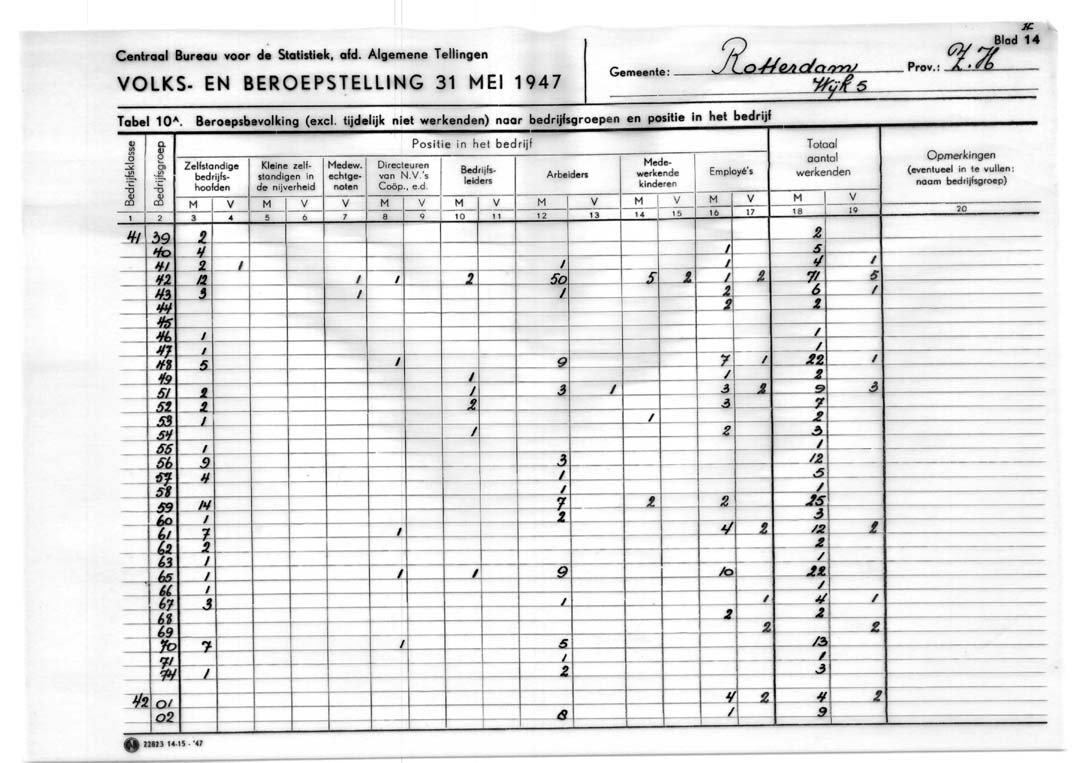 Blad 14
Centraal Bureau voor de Statistiek, afd. Algemene Tellingen
VOLKS- EN BEROEPSTELLING 31 MEI 1947
Gemeente: Rotterdam Prov.: Z.H
Wijk 5
Tabel 10A. Beroepsbevolking (excl. tijdelijk niet werkenden) naar bedrijfsgroepen en positie in het bedrijf
Bedrijfsklasse Bedrijfsgroep Positie in het bedrijf Totaal aantal werkenden Opmerkingen (eventueel in te vullen: naam bedrijfsgroep)
Zelfstandige bedrijfshoofden Kleine zelfstandigen in de nijverheid Medew. echtgenoten Directeuren van N.V.'s Coöp., e.d. Bedrijfsleiders Arbeiders Medewerkende kinderen Employé's
M V M V V M V M V M V M V M V M V
1 2 3 4 5 6 7 8 9 10 11 12 13 14 15 16 17 18 19 20
41 39 2 2
40 4 1 5
41 2 1 1 1 4 1
42 12 1 1 2 50 5 2 1 2 71 5
43 3 1 1 2 6 1
44 2 2
45
46 1 1
47 1 1
48 5 1 9 7 1 22 1
49 1 1 2
51 2 1 3 1 3 2 9 3
52 2 2 3 7
53 1 1 2
54 1 2 3
55 1 1
56 9 3 12
57 4 1 5
58 1 1
59 14 7 2 2 25
60 1 2 3
61 7 1 4 2 12 2
62 2 2
63 1 1
65 1 1 1 9 10 22
66 1 1
67 3 1 1 4 1
68 2 2
69 2 2
70 7 1 5 13
71 1 1
74 1 2 3
42 01 4 2 4 2
02 8 1 9
22823 14-15 - '47